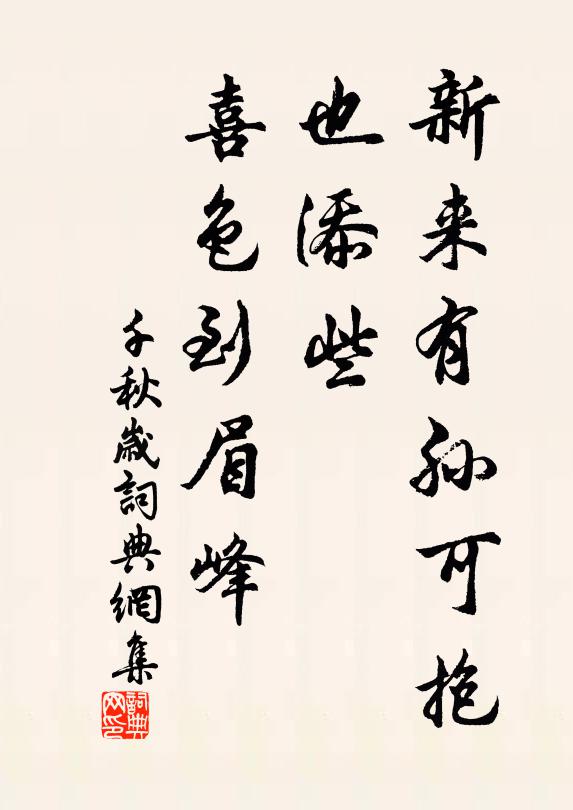 新来有孙可抱
也添些
喜色到眉峰
千秋歲詞典網集
詞典网印